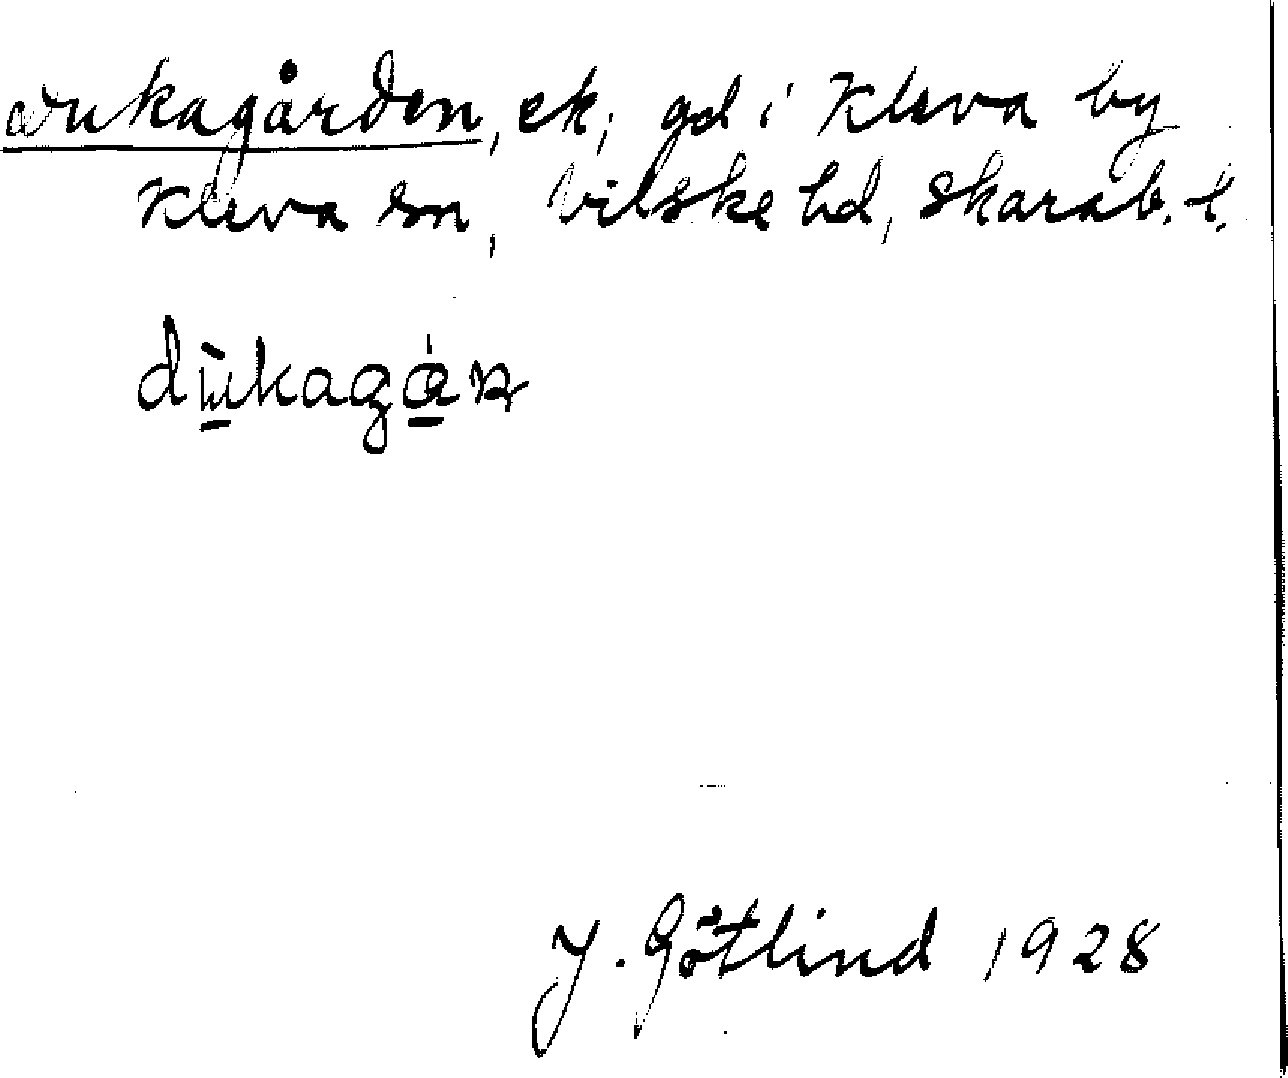 Dukagården, ek, gd i Kleva by
Kleva sn, Vilske hd, Skarab. l.
J. Götlind 1928